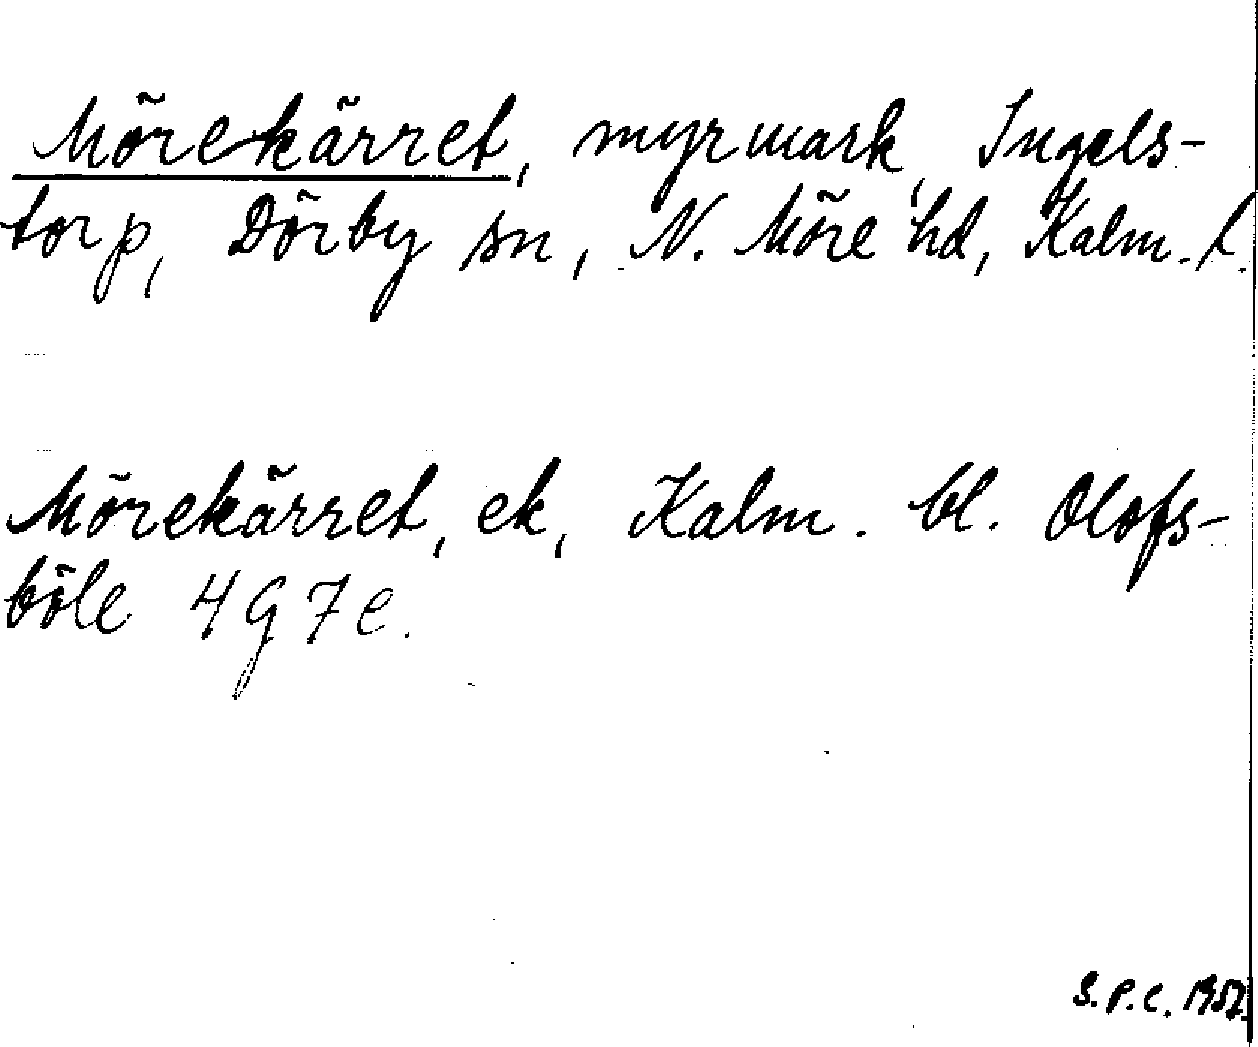 Mörekärret, myrmark, Ingels-
torp, Dörby sn, N. Möre hd, Kalm. l.
Mörekärret, ek, Kalm. bl. Olofs-
böle 4 G 7 e.
S.P.C. 1957.